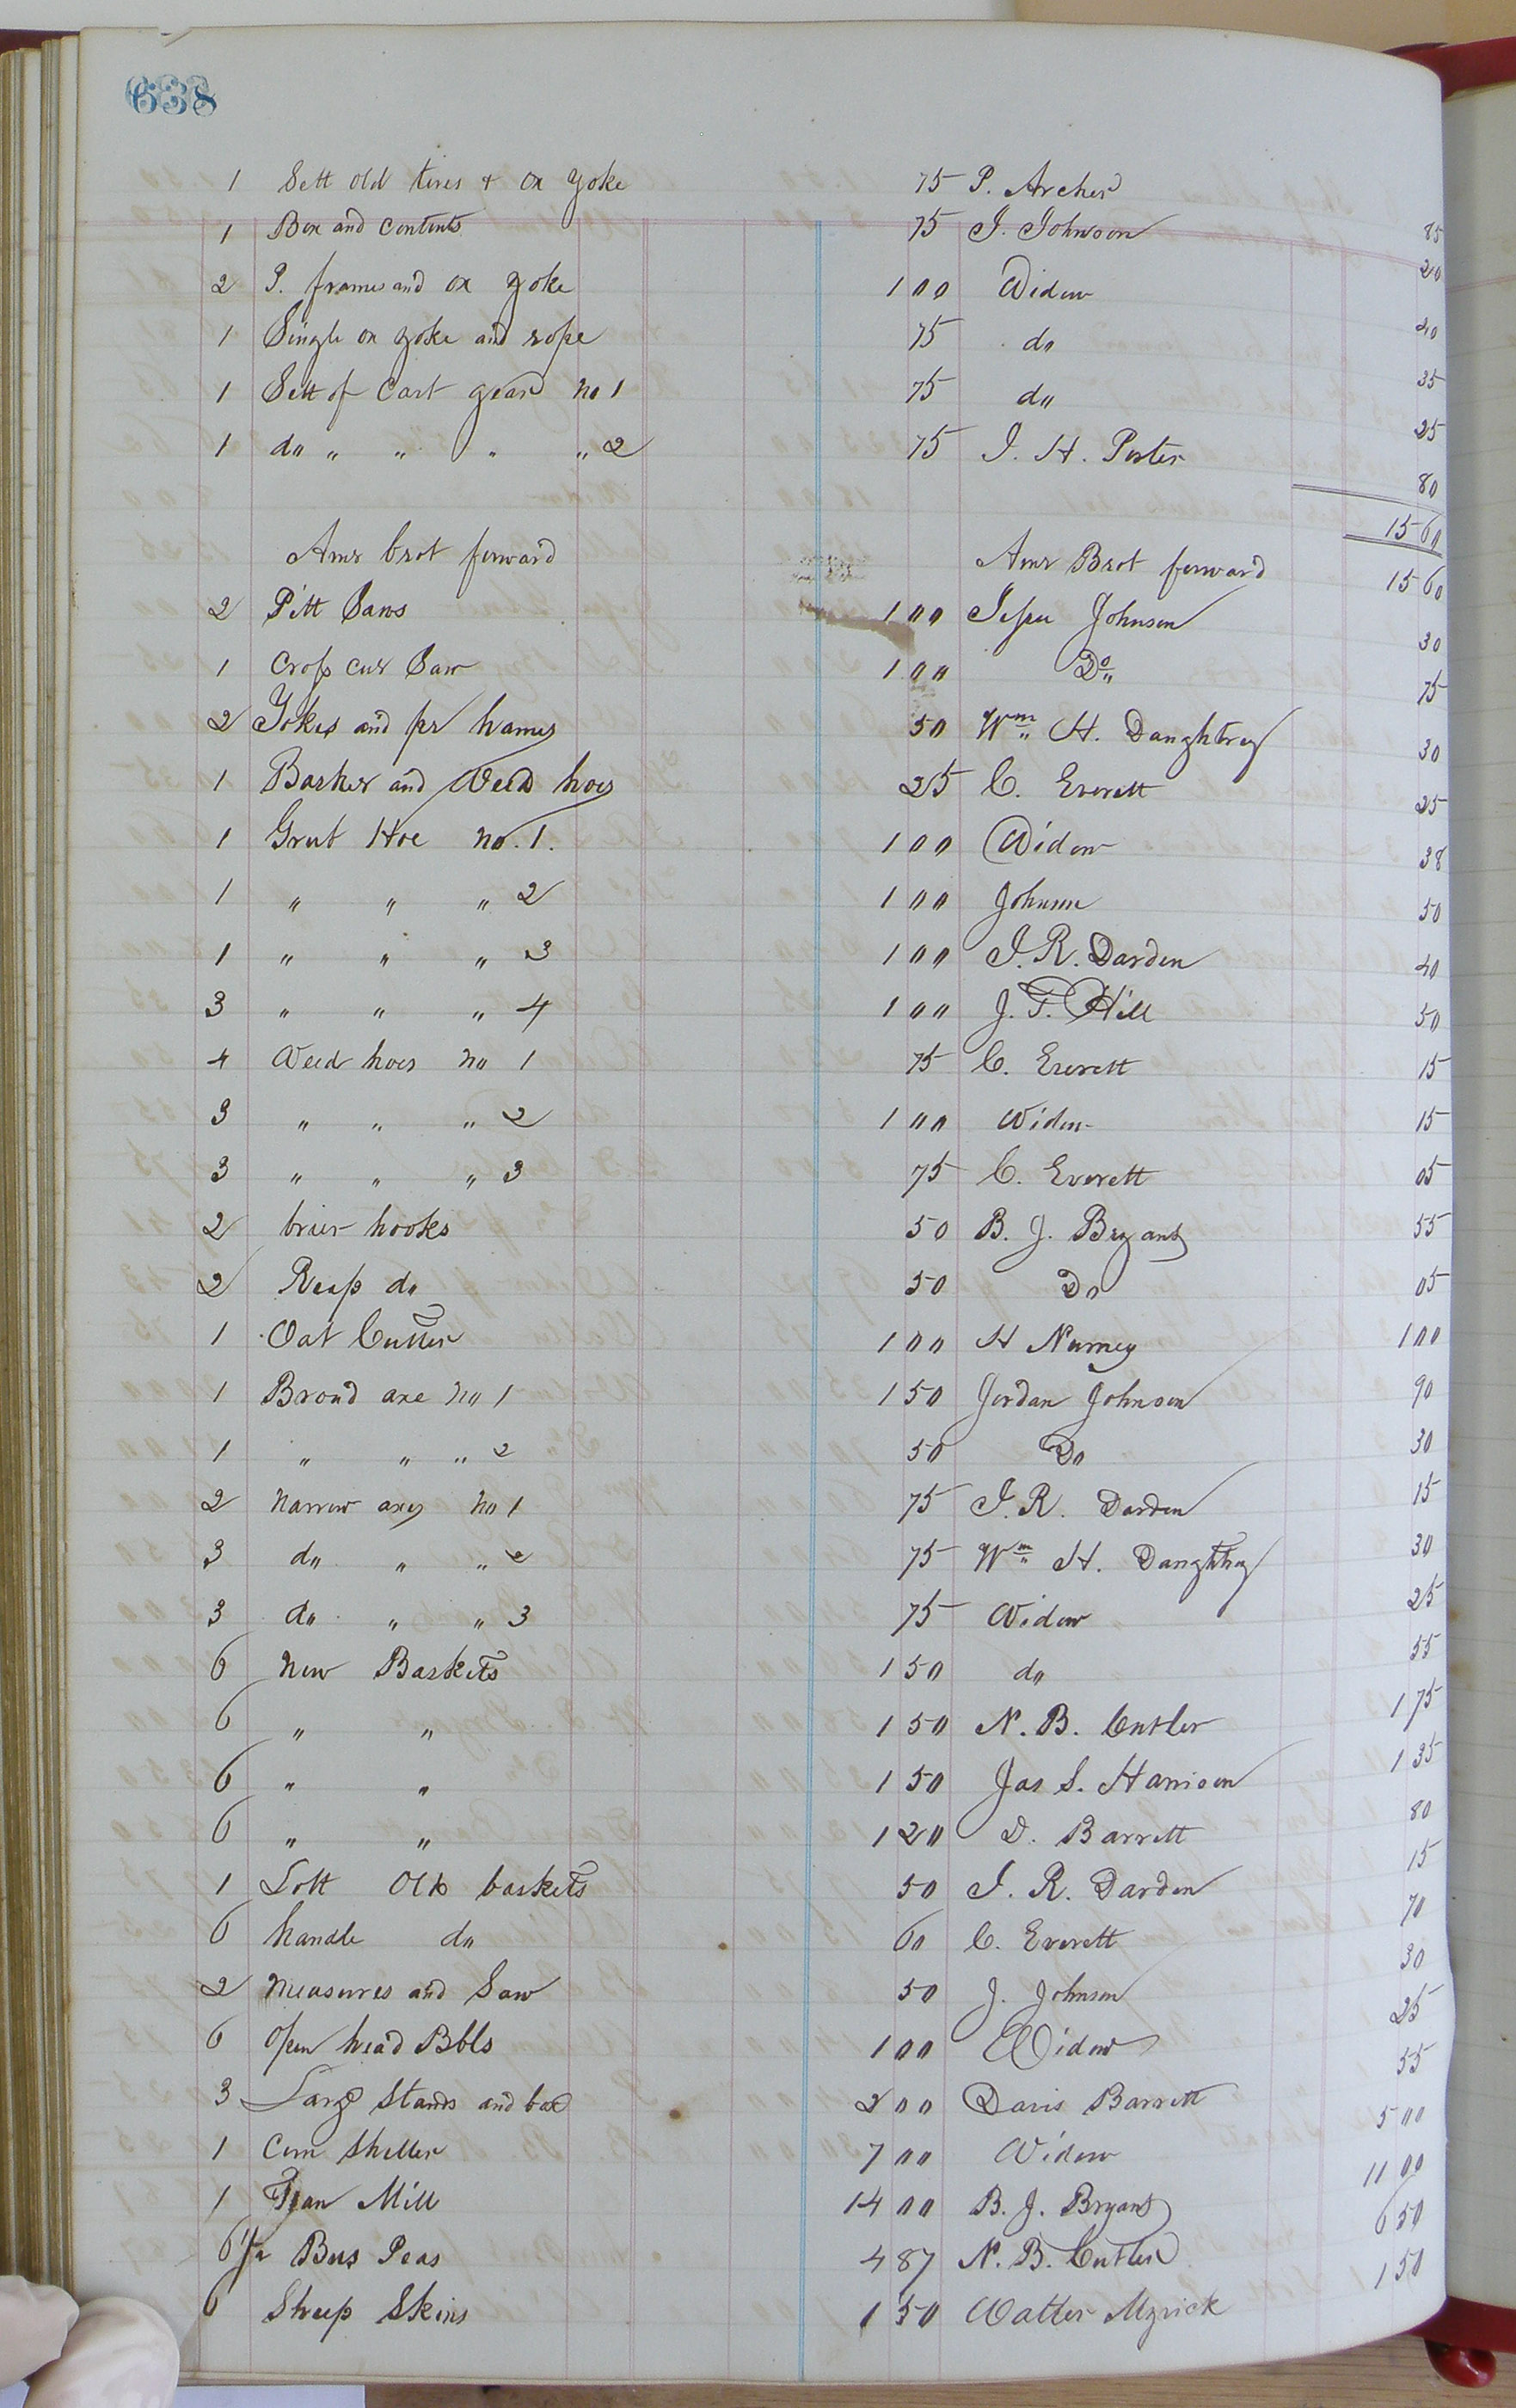 638
1 Sett old tires & ox yoke 75 P. Archer 85
1 Box and contents 75 J. Johnson 20
2 P. frames and ox yoke 100 Widow 40
1 Single ox yoke and rope 75 do 35
1 Sett of Cart gear no 1 75 do 25
1 do " " " " 2 75 J. H. Porter 80
1560
Amt brot forward Amt Brot forward 1560
2 Pitt Saws 100 Jesse Johnson 30
1 Cross cut Saw 100 Do 75
2 Yokes and pr hames 50 Wm H. Daughtrey 30
1 Basket and Weed hoes 25 C. Everett 25
1 Grub Hoe no. 1. 100 Widow 38
1 " " " 2 100 Johnson 50
1 " " " 3 100 J. R. Darden 40
3 " " " 4 100 J. T. Hill 50
4 Weed hoes no 1 75 C. Everett 15
3 " " " 2 100 Widow 15
3 " " " 3 75 C. Everett 05
2 brier hooks 50 B. J. Bryant 55
2 Reap do 50 Do 05
1 Oat Cutter 100 H Nurney 100
1 Broad axe no 1 150 Jordan Johnson 90
1 " " " 2 50 Do 30
2 narrow axes no 1 75 J. R. Darden 15
3 do " " 2 75 Wm H. Daughtrey 30
3 do " " 3 75 Widow 25
6 new Baskets 150 do 55
6 " " 150 N. B. Cutler 175
6 " " 150 Jas S. Harrison 135
6 " " 120 D. Barrett 80
1 Lott Old baskets 50 J. R. Darden 15
6 handle do 60 C. Everett 70
2 measures and Saw 50 J. Johnson 30
6 open head Bbls 100 Widow 25
3 Large Stands and box 200 Davis Barrett 55
1 Corn Sheller 700 Widow 500
1 Fan Mill 1400 B. J. Bryant 1100
6 1/2 Bus Peas 487 N. B. Cutler 650
6 Sheep Skins 150 Walter Myrick 150